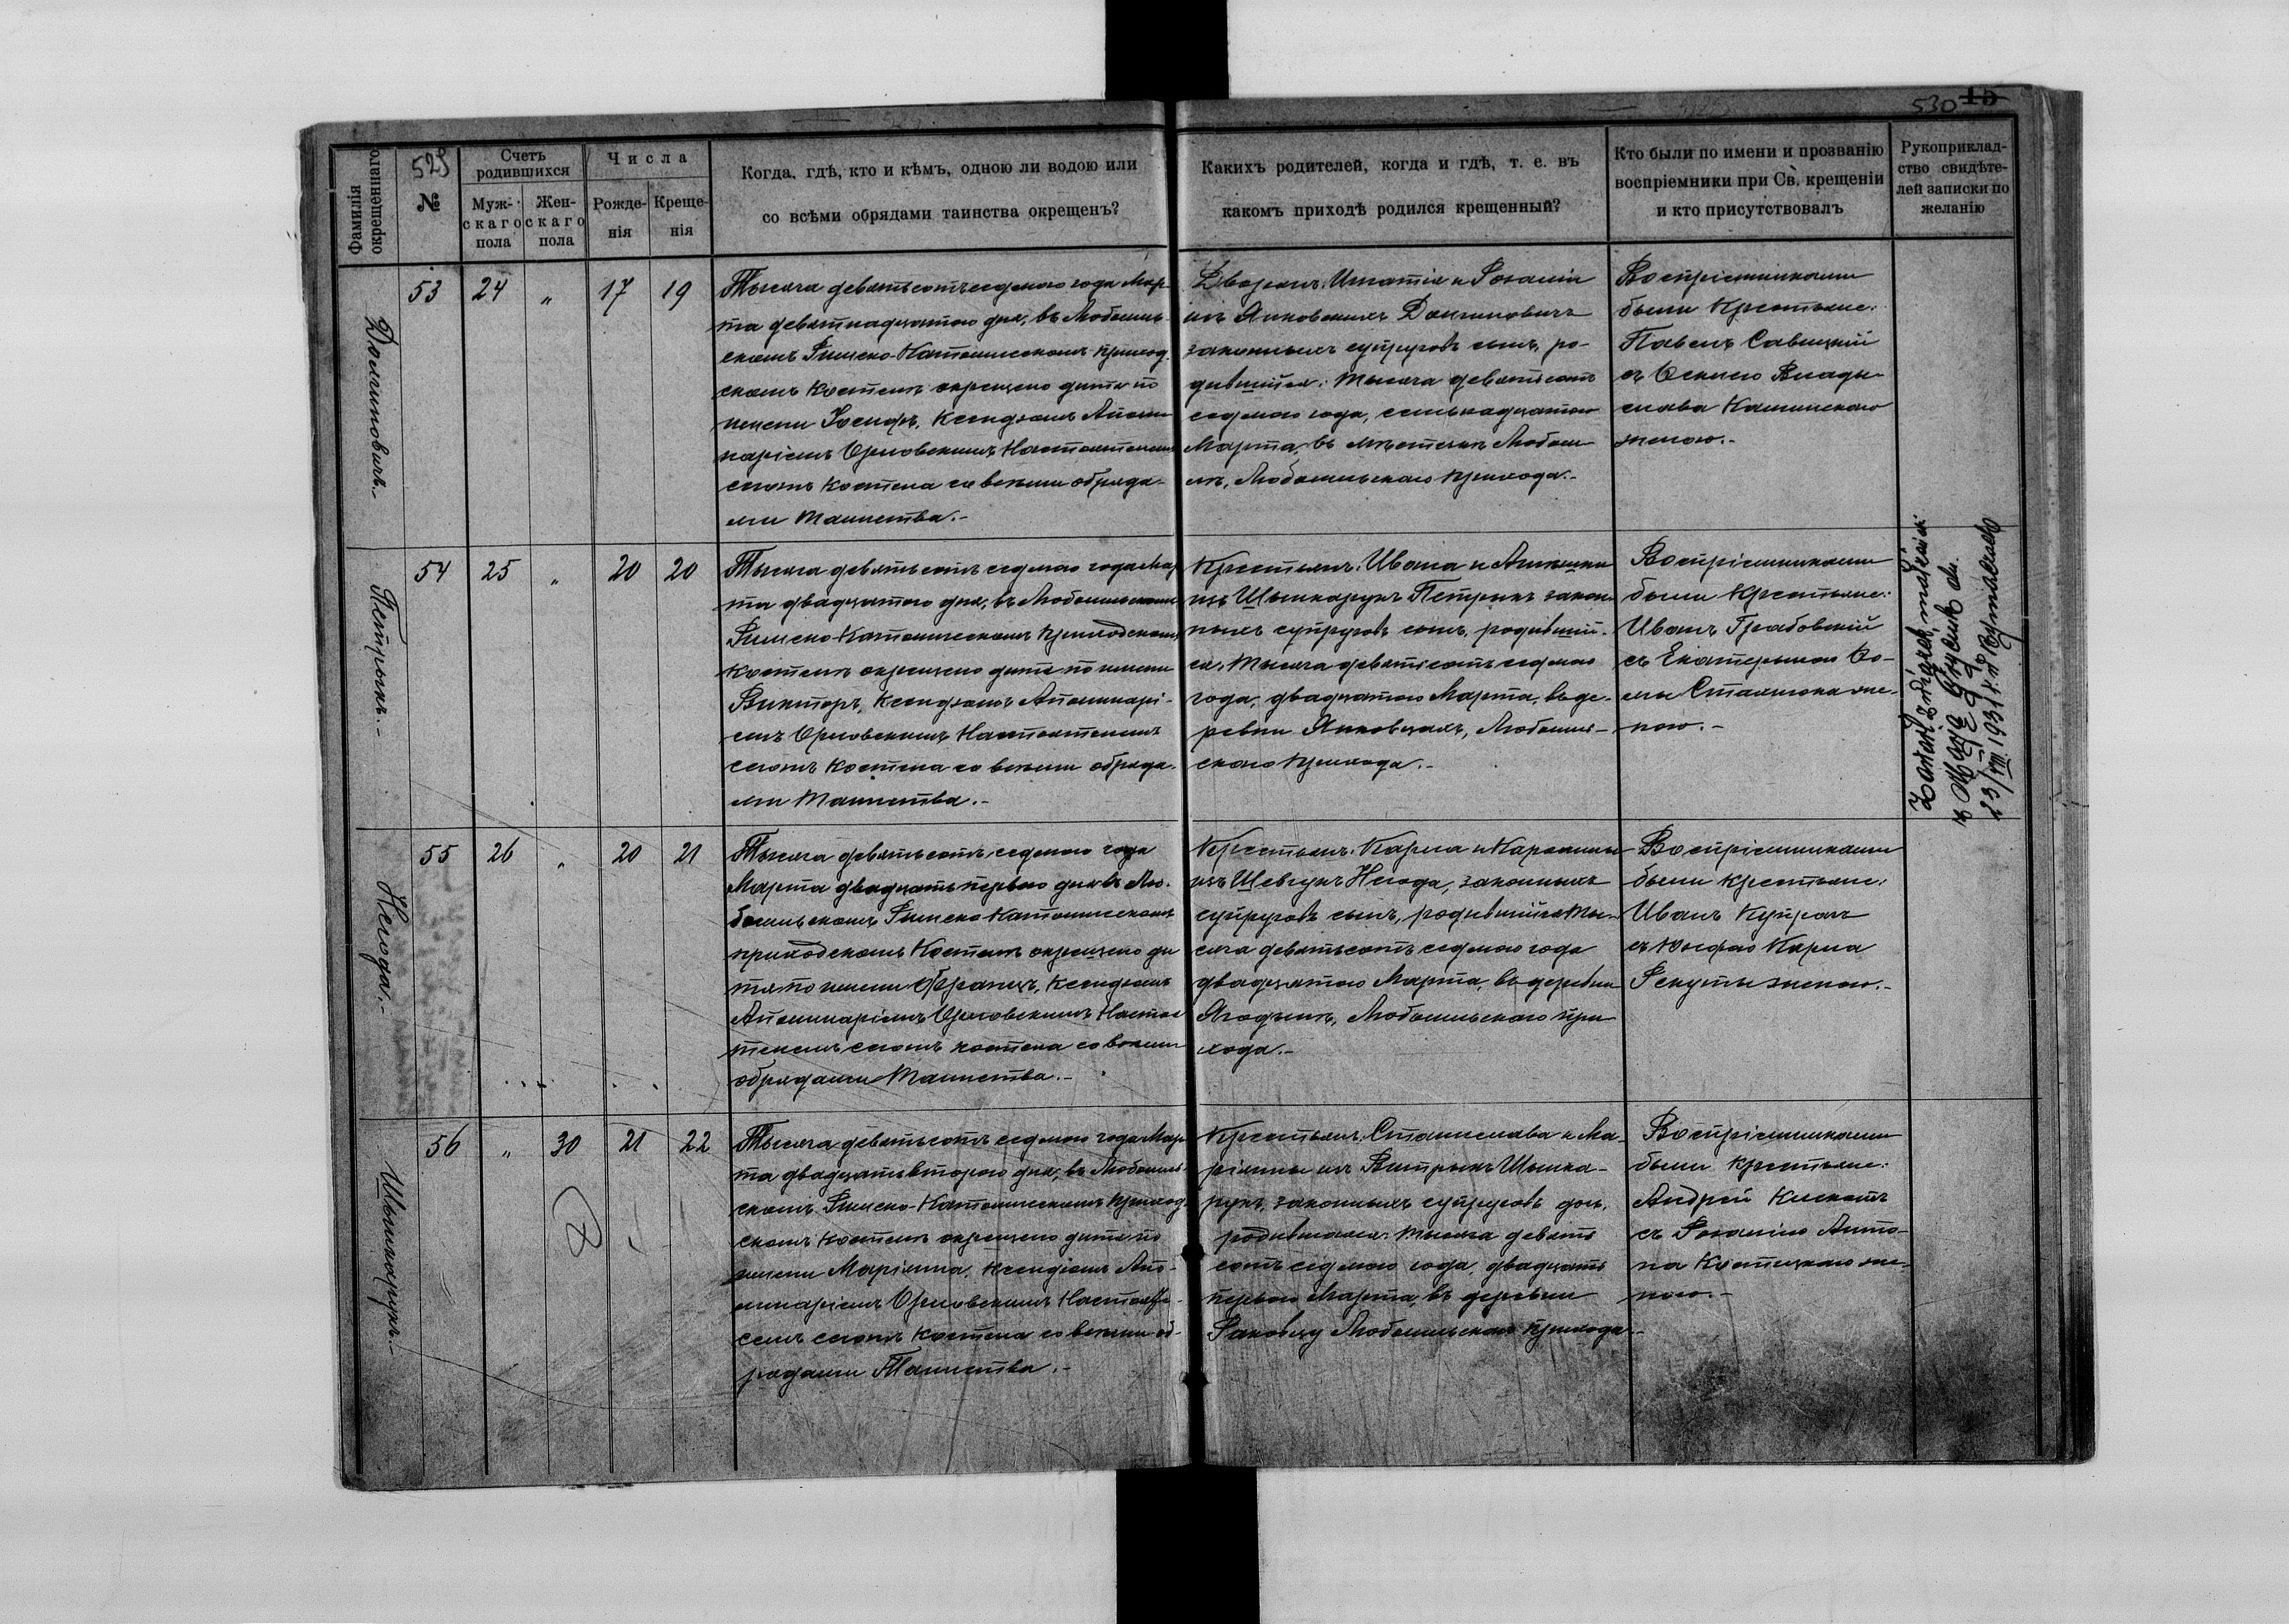 530 15
Фамилія окрещеннаго
529
№
Счетъ родившихся
Муж-скаго пола
Жен-скаго пола
Числа
Рожде-нія
Креще-нія
Когда, гдѣ, кто и кѣмъ, одною ли водою или
со всѣми обрядами таинства окрещенъ?
Какихъ родителей, когда и гдѣ, т. е. въ
какомъ приходѣ родился крещенный?
Кто были по имени и прозванію
воспріемники при Св. крещеніи
и кто присутствовалъ
Рукоприклад-
ство свидѣте-
лей записки по
желанію
53 24 " 17 19
Тысяча девятьсотъ седмого года Мар-
та девятнадцатого дня, въ Любомль-
скомъ Римско-Католическомъ приход-
скомъ костелѣ окрещено дитя по
имени Іосифъ, Ксендзомъ Аполи-
наріемъ Орловскимъ Настоятелемъ
сегожъ костела со всѣми обряда-
ми Таинства.-
Дворянъ: Игнатія и Розаліи
изъ Янковскихъ
законныхъ супруговъ сынъ, ро-
дившійся: тысяча девятьсотъ
седмого года, семьнадцатого
Марта, въ мѣстечкѣ Любом-
лѣ, Любомльскаго прихода.-
Воспріемниками
были Крестьяне:
Павелъ Савицкій
съ Влади-
слава Калинскаго
женою.-
54 25 " 20 20
Петрыкъ.-
Тысяча девятьсотъ седмого года Мар
та двадцатого дня, въ Любомльскомъ
Римско-Католическомъ приходскомъ
костелѣ окрещено дитя по имени
Викторъ, Ксендзомъ Аполинарі-
емъ Орловскимъ Настоятелемъ
сегожъ костела со всѣми обряда-
ми Таинства.-
Крестьянъ: Ивана и
изъ Шышкарукъ Петрыкъ закон
ныхъ супруговъ сынъ, родившій-
ся: тысяча девятьсотъ седмого
года, двадцатого Марта, въ де-
ревни Янковцахъ, Любомль-
скаго прихода.-
Воспріемниками
были Крестьяне:
Иванъ Грабовскій
съ Екатериною Ѳо-
мы же-
ною.-
23/VIII 1931 r.
55 26 " 20 21
Негода.-
Тысяча девятьсотъ седмого года
Марта двадцать перваго дня въ Лю-
бомльскомъ Римско Католическомъ
приходскомъ Костелѣ окрещено ди
тя по имени Францъ, Ксендзомъ
Аполинаріемъ Орловскимъ Настоя
телемъ сегожъ костела со всѣми
обрядами Таинства.-
Крестьянъ: Карла и Каролины
изъ Шевчукъ Негода, законныхъ
супруговъ сынъ, родившійся ты-
сяча девятьсотъ седмого года
двадцатого Марта, въ деревни
Ягодынѣ, Любомльскаго при
хода.-
Воспріемниками
были крестьяне:
Иванъ Купрач
съ Юзефою Карла
Рекуты женою.-
56 " 30 21 22
Шышкарукъ.-
Тысяча девятьсотъ седмого года Мар
та двадцать второго дня, въ Любомль-
скомъ Римско-Католическомъ приход-
скомъ костелѣ окрещено дитя по
имени Маріянна, Ксендзомъ Апо-
линаріемъ Орловскимъ Настояте-
лемъ сегожъ костела со всѣми об-
рядами Таинства.-
Крестьянъ: Станислава и Ма-
ріянны изъ Шышка-
рукъ, законныхъ супруговъ дочь,
родившаяся: тысяча девять
сотъ седмого года, двадцать
перваго Марта, въ деревни
Раковцу Любомльскаго прихода.-
Воспріемниками
были Крестьяне:
Андрей
съ Розаліею Анто-
на Костецкаго же-
ною.-